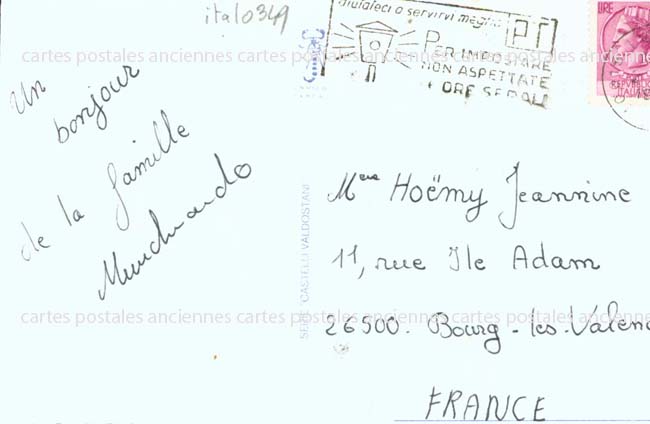 ital0349
aiutateci a servirvi meglio
PT
PER IMPOSTARE
NON ASPETTATE
ORE SERALI
LIRE
REPUBBLICA
ITALIANA
cartes postales anciennes cartes postales anciennes cartes postales anciennes
Un
bonjour
de la famille
SERIE CASTELLI VALDOSTANI
Mme Hoëmy Jeannine
11, rue Ile Adam
cartes postales anciennes cartes postales anciennes cartes postales anciennes
26500. Bourg-les-Valenc
FRANCE